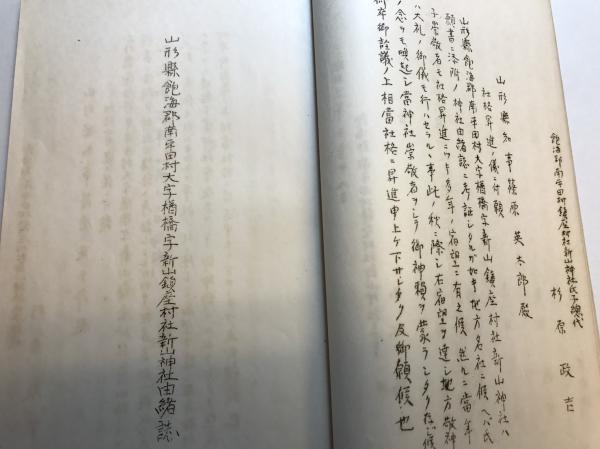 飽海郡南平田村鎮座村社新山神社氏子総代
杉原政吉
山形縣知事篠原英太郎殿
社格昇進ノ儀ニ付願
山形縣飽海郡南平田村大字楢橋字新山鎮座村社新山神社ハ
願書ニ添附ノ神社由緒誌ニ考証シタルガ如キ地方名社ニ候ヘバ氏
子崇敬者モ社格昇進ニツキ多年ノ宿望ニ有之候然ルニ當年
ハ大礼ノ御儀モ行ハセラルヽ事此ノ秋ニ際シ右宿望ヲ達シ地方敬神
ノ念ヲモ喚起シ當神社崇敬者ヲシテ御神賴ヲ蒙ラシメタク存候
何卒御詮議ノ上相當社格ニ昇進申上ゲ下サレタク及御願候也
山形縣飽海郡南平田村大字楢橋字新山鎮座村社新山神社由緒誌